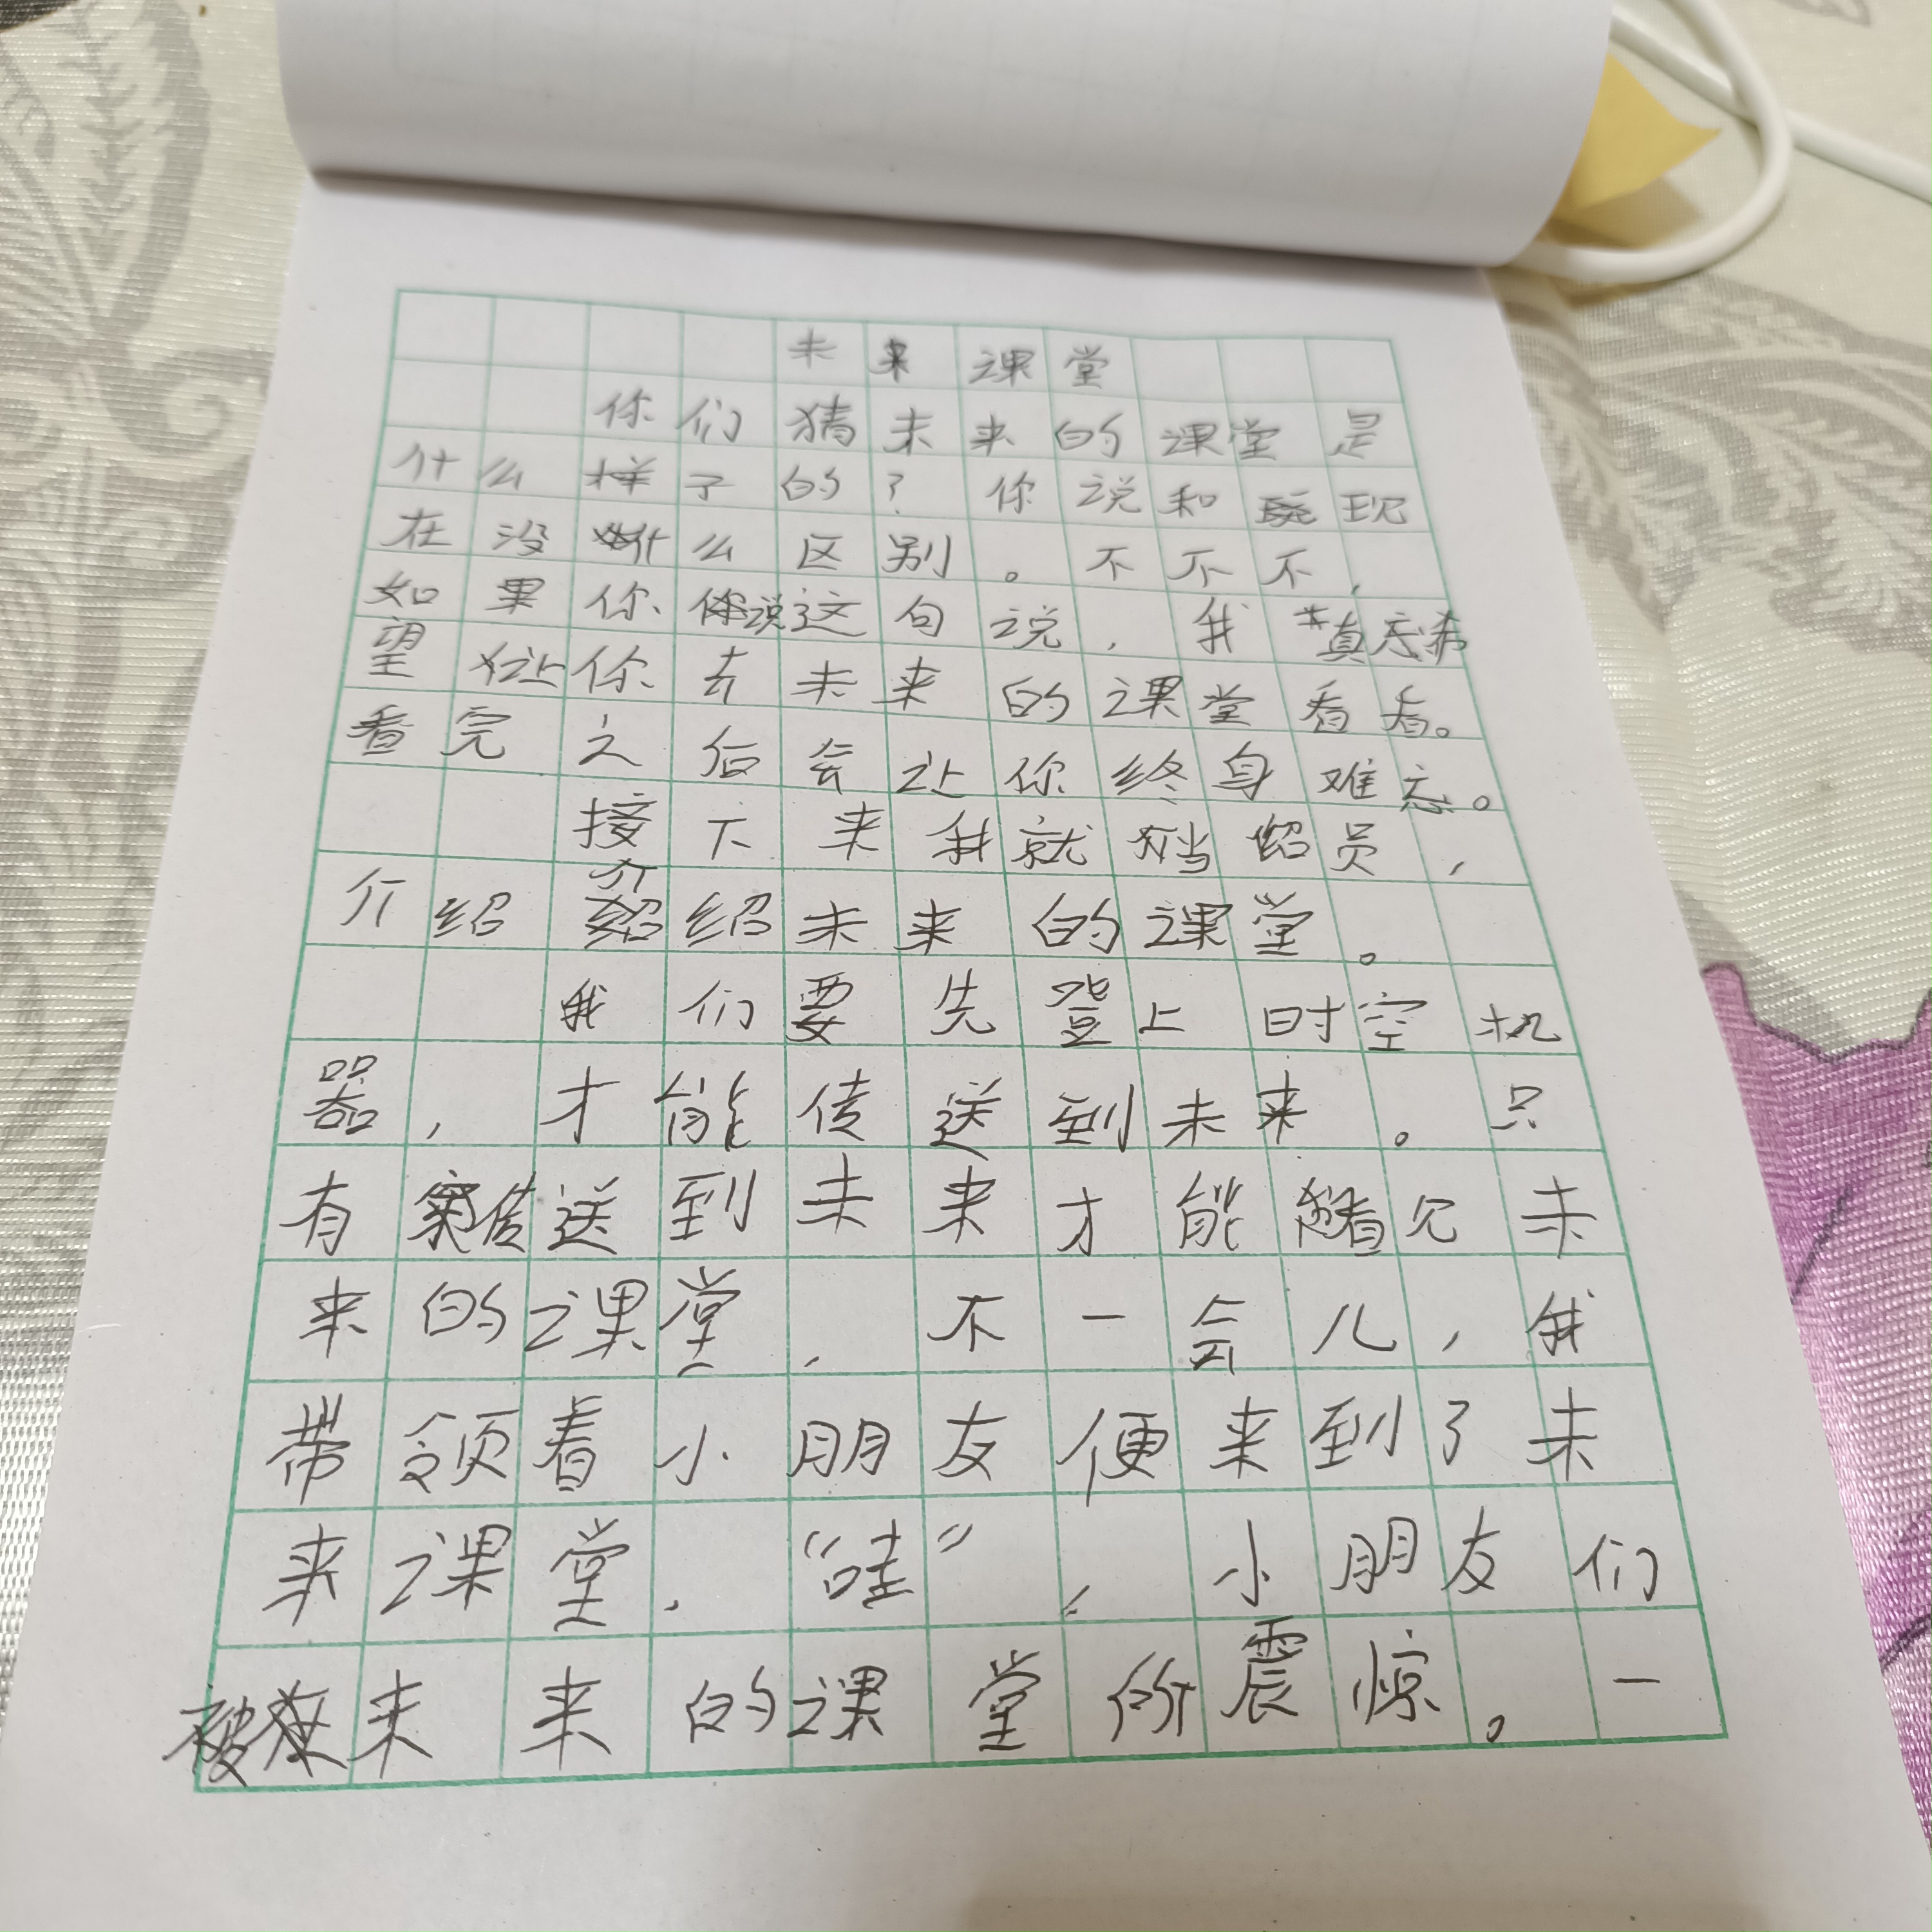 未来课堂
你们猜未来的课堂是
什么样子的？你说和现
在没什么区别。不不不，
如果你说这句说，我真希
望让你去未来的课堂看看。
看完之后会让你终身难忘。
接下来我就当绍员，
介绍介绍未来的课堂。
我们要先登上时空机
器，才能传送到未来。只
有传送到未来才能看见未
来的课堂，不一会儿，我
带领着小朋友便来到了未
来课堂．“哇”，小朋友们
被未来的课堂所震惊。一